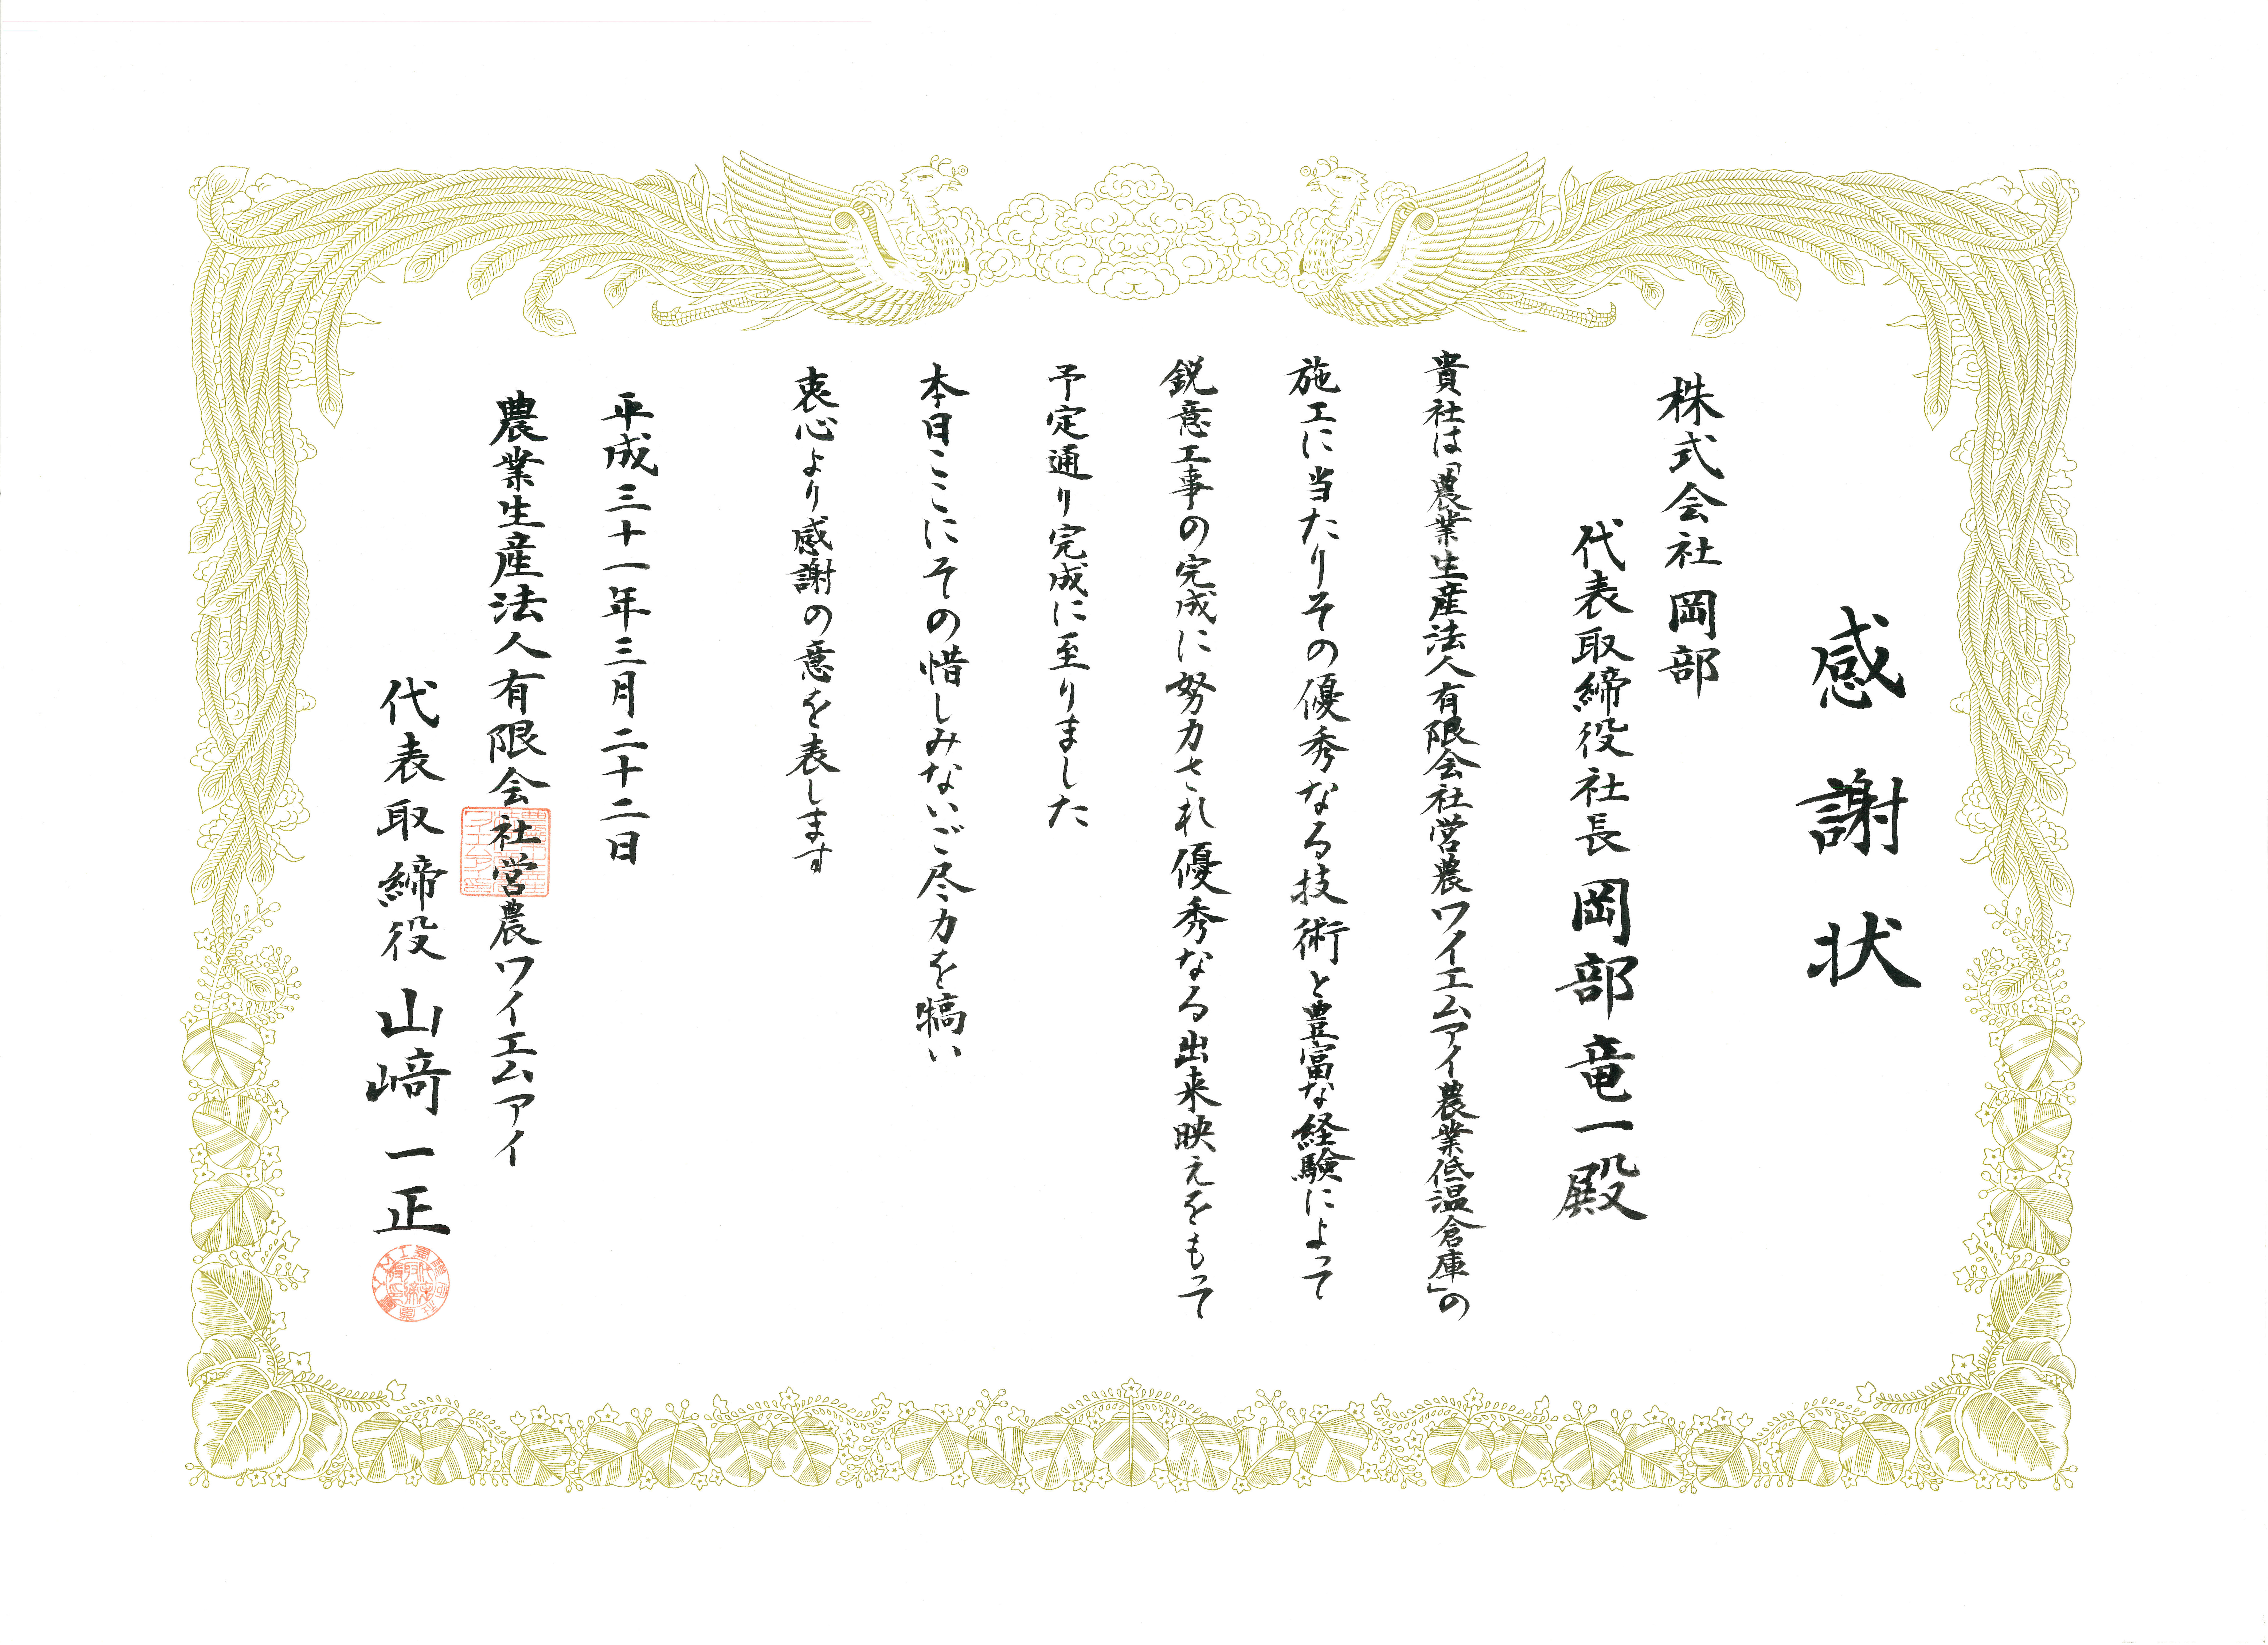 感謝状
株式会社 岡部
代表取締役社長 岡部竜一殿
貴社は「農業生産法人有限会社営農ワイエムアイ農業低温倉庫」の
施工に当たりその優秀なる技術と豊富な経験によって
鋭意工事の完成に努力され優秀なる出来映えをもって
予定通り完成に至りました
本日ここにその惜しみないご尽力を犒い
衷心より感謝の意を表します
平成三十一年三月二十二日
農業生産法人有限会社営農ワイエムアイ
代表取締役 山﨑一正